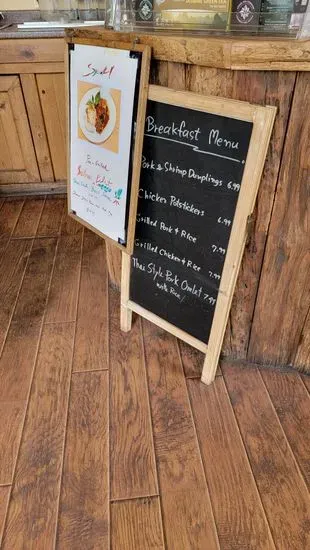 Special
Pan-fried
Breakfast Menu
Pork & Shrimp Dumplings 6.99
Chicken Potstickers 6.99
Grilled Pork & Rice 7.99
Grilled Chicken & Rice 7.99
Thai Style Pork Omlet 7.99
with Rice